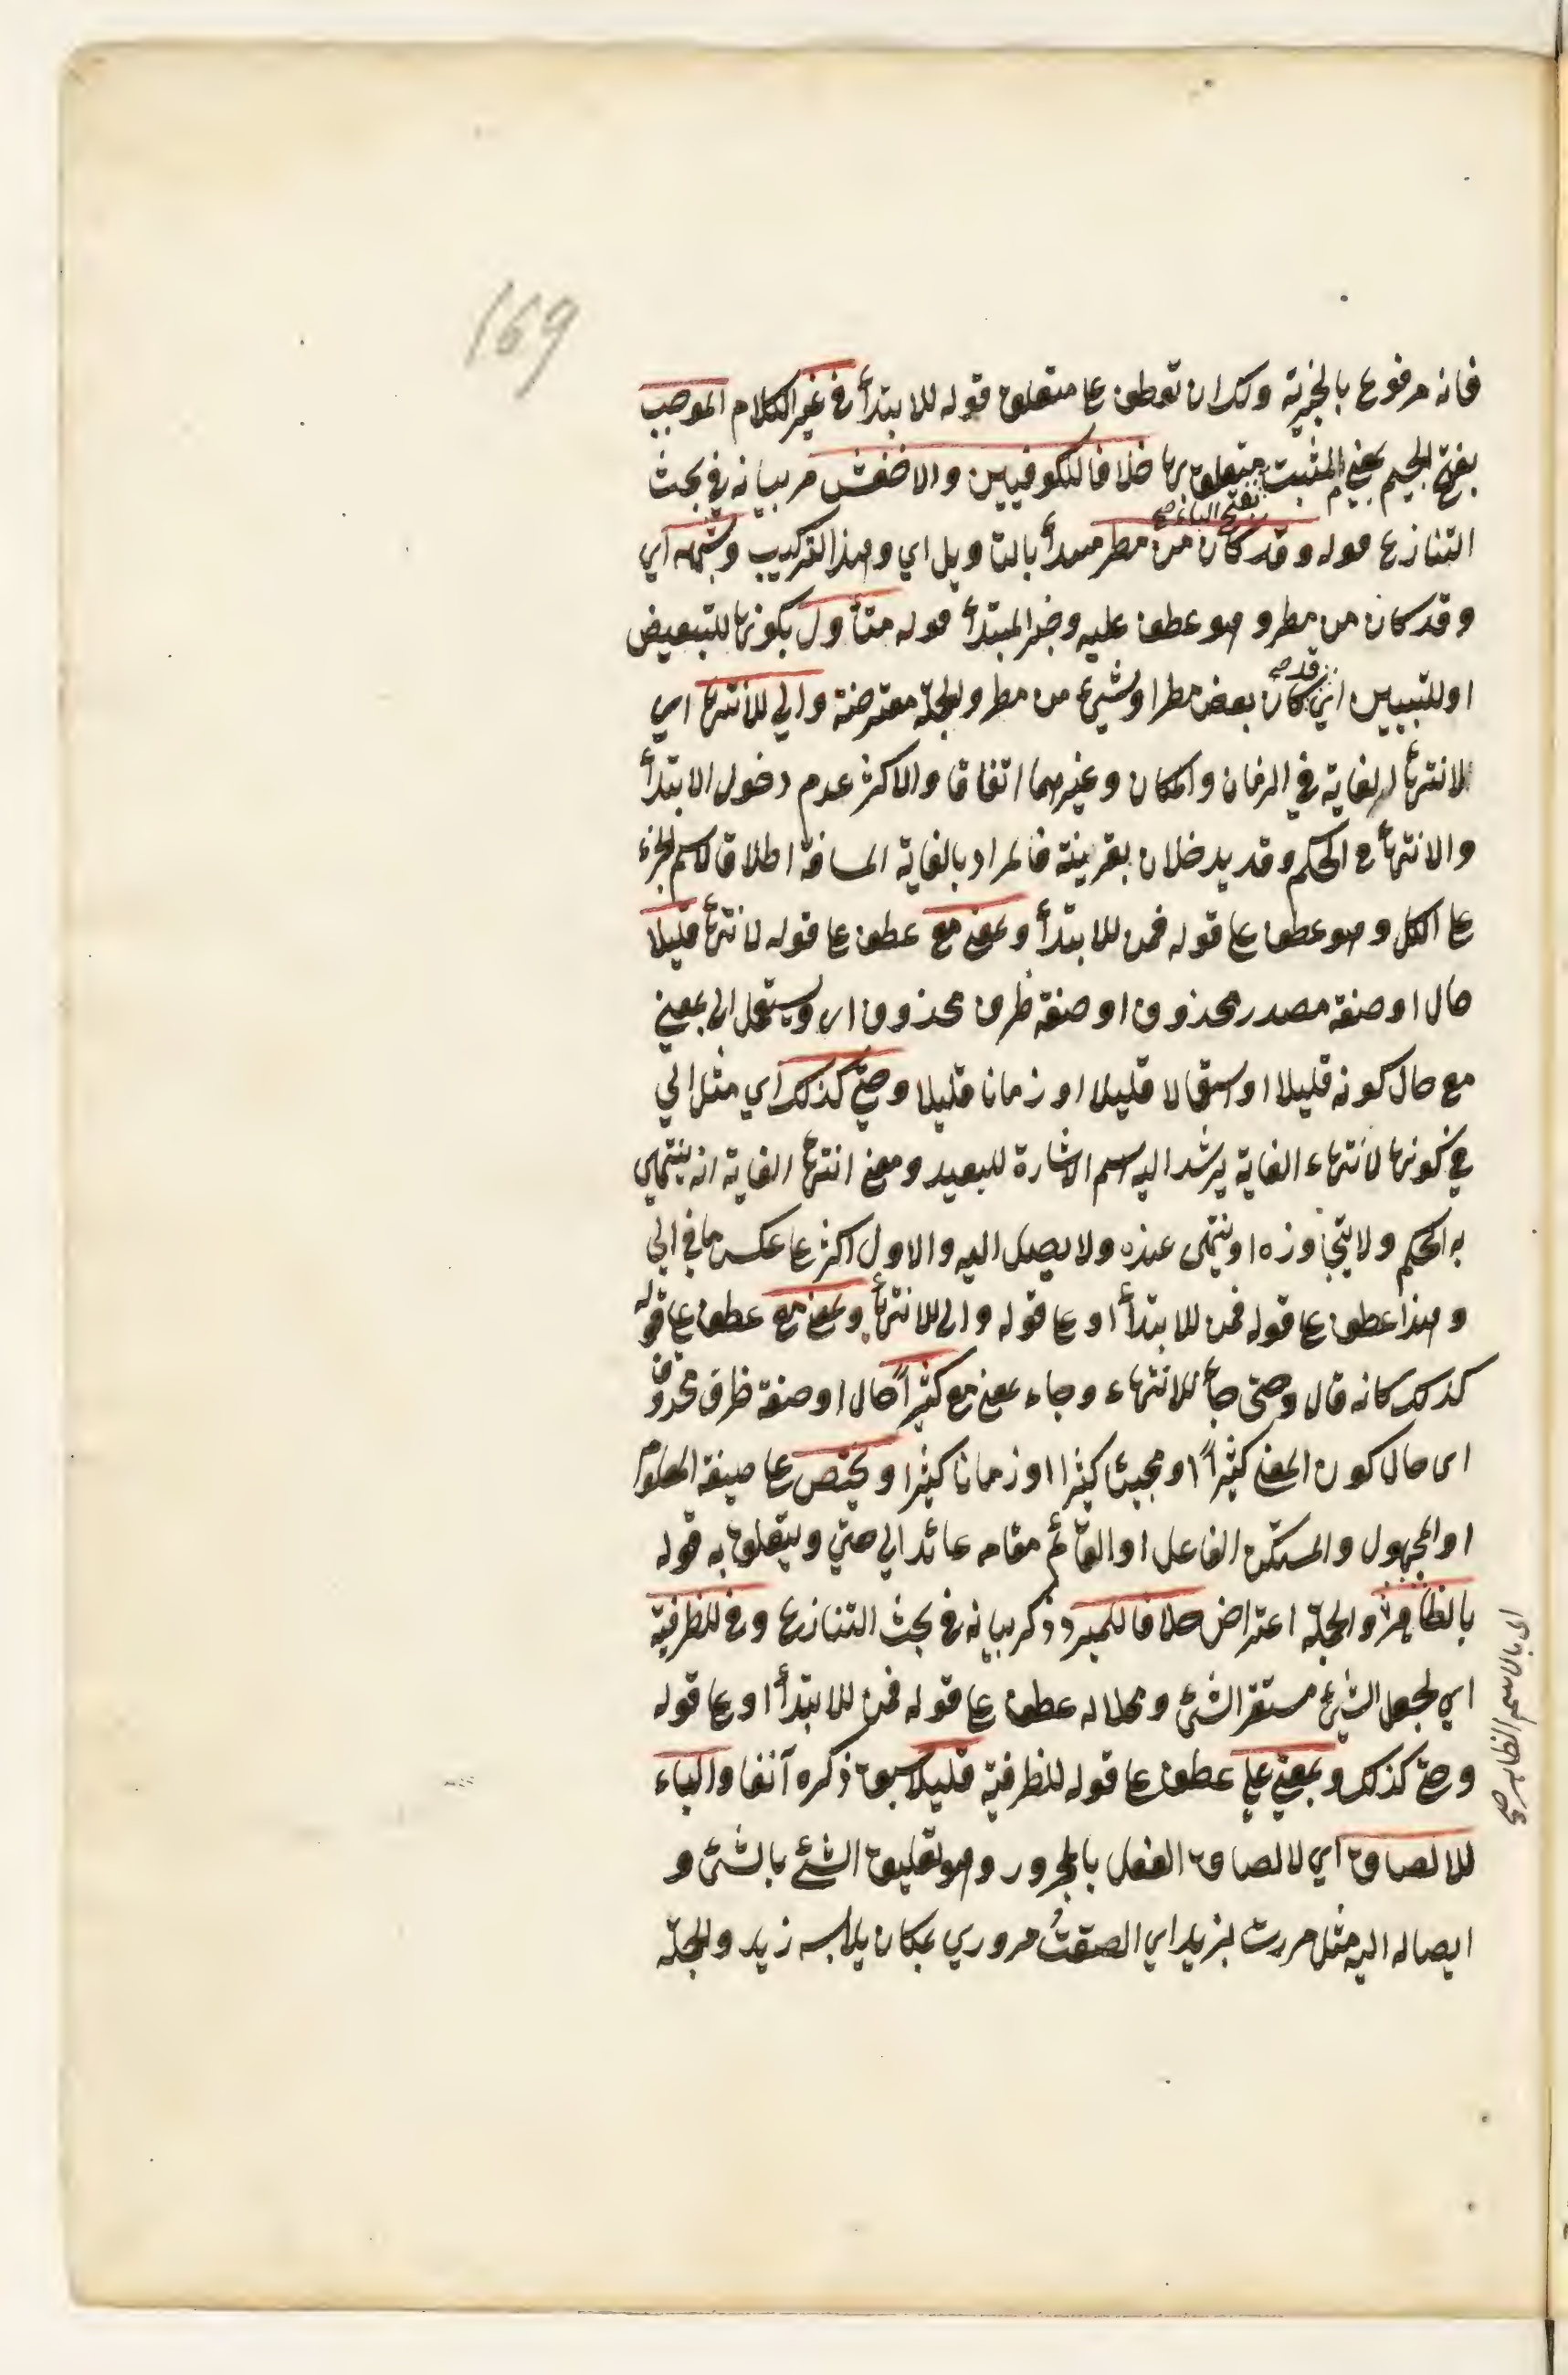 169
فانه مرفوع بالخبرية ولك ان تعطف على متعلق قوله للابتدأ في غير الكلام الموجب
بفتح الجيم بمعنى المثبت متعلق بها خلافا للكوفيين والاخفش مر بيانه في بحث
التنازع قوله وقد كان من مطر مبتدأ بالتاويل اي وهذا التركيب وشبهه اي
بفتح الباء صح
وقد كان من مطر وهو عطف عليه وخبر المبتدأ قوله متأول بكونها للتبعيض
او للتبيين اي كان بعض مطر او شيئ من مطر والجملة معترضة والى للانتهاء اي
قد صح
لانتهاء الغاية في الزمان والمكان وغيرهما اتفاقا والاكثر عدم دخول الابتدأ
والانتهأ في الحكم وقد يدخلان بقرينة فالمراد بالغاية المسافة اطلاقا لاسم الجزء
على الكل وهو عطف على قوله فمن للابتدأ وبمعنى مع عطف على قوله لانتهأ قليلا
حال او صفة مصدر محذوف او صفة ظرف محذوف اي ويستعمل الى بمعنى
مع حال كونه قليلا او استعمالا قليلا او زمانا قليلا وحتى كذلك اي مثل الى
في كونها لانتهاء الغاية يرشد اليه اسم الاشارة للبعيد ومعنى انتهأ الغاية انه ينتهى
به الحكم ولا يتجاوزه او ينتهى عنده ولا يصل اليه والاول اكثر على عكس ما في الى
وهذا عطف على قوله فمن للابتدأ او على قوله والى للانتهأ وبمعنى مع عطف على قوله
كذلك كانه قال وحتى جأ للانتهاء وجاء بمعنى مع كثيراً حال او صفة ظرف محذوف
اى حال كون المعنى كثيراً او مجيئا كثيرا او زمانا كثيرا ويختص على صيغة المعلوم
او المجهول والمستكن الفاعل او القائم مقامه عائد الى حتى ويتعلق به قوله
بالظاهر والجملة اعتراض خلافا للمبرد وذكر بيانه في بحث التنازع وفي للظرفية
اي لجعل الشيئ مستقر الشئ ومحلا له عطف على قوله فمن للابتدأ او على قوله
وحتى كذلك وبمعنى على عطف على قوله للظرفية قليلا سبق ذكره آنفا والباء
للالصاق اي لالصاق الفعل بالمجرور وهو تعليق الشئ بالشئ و
ايصاله اليه مثل مررت بزيد اي الصقتُ مروري بمكان يلابسه زيد والجملة